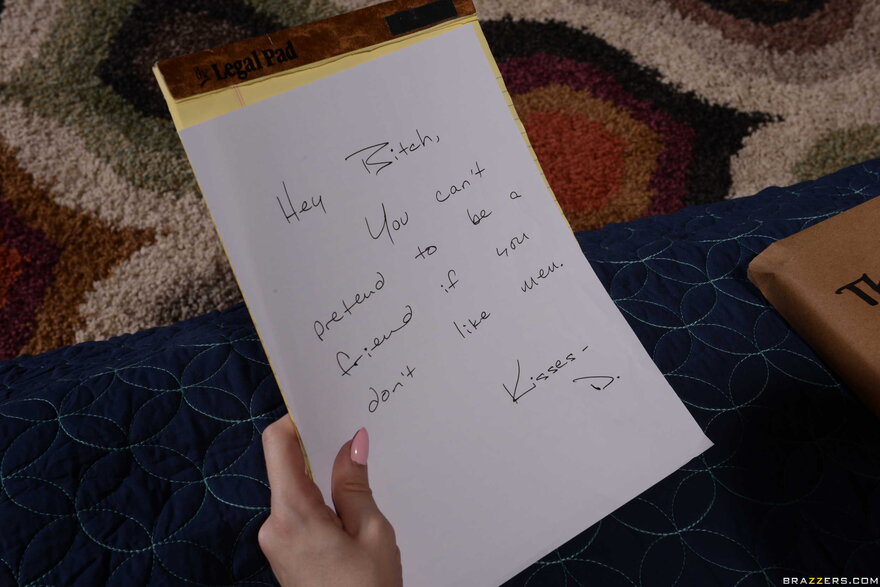 the Legal Pad
Hey Bitch,
You can't
pretend to be a
friend if you
don't like men.
Kisses-
D.
Th
BRAZZERS.COM